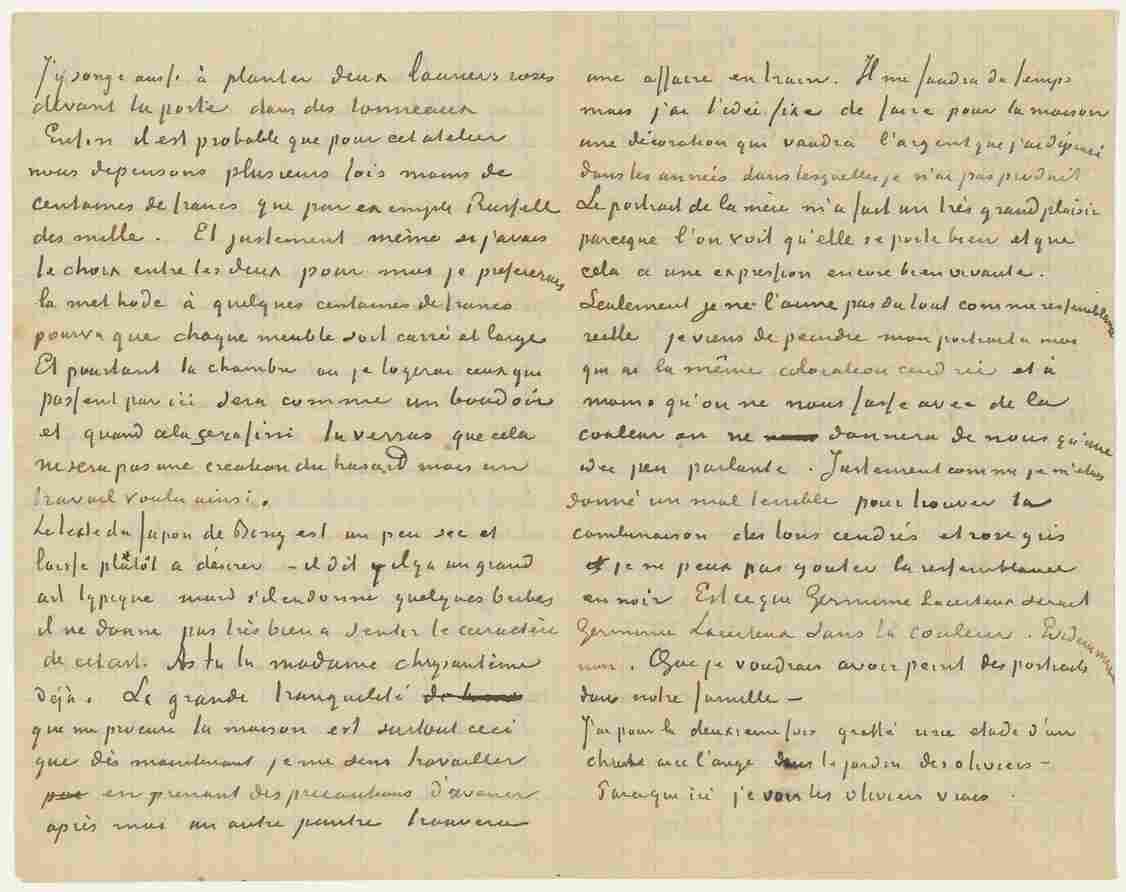 J'y songe aussi à planter deux lauriers roses
devant la porte dans des tonneaux
Enfin il est probable que pour cet atelier
nous depensons plusieurs fois moins de
centaines de francs que par exemple Russell
des mille. Et justement même si j'avais
le choix entre les deux pour moi je prefererais
la methode à quelques centaines de francs
pourvu que chaque meuble soit carré et large
Et pourtant la chambre où je logerai ceux qui
passent par ici sera comme un boudoir
et quand cela sera fini tu verras que cela
ne sera pas une creation du hasard mais un
travail voulu ainsi.
Le texte du Japon de Bing est un peu sec et
laisse plutôt a désirer – il dit qu'il y a un grand
art typique mais s'il en donne quelques bribes
il ne donne pas très bien a sentir le caractère
de cet art. As tu lu madame chrysantème
déjà. La grande tranquilité
que me procure la maison est surtout ceci
que dès maintenant je me sens travailler
en prenant des precautions d'avenir
après moi un autre peintre trouvera
une affaire en train. Il me faudra du temps
mais j'ai l'idée fixe de faire pour la maison
une décoration qui vaudra l'argent que j'ai dépensé
dans les années dans lesquelles je n'ai pas produit
Le portrait de la mère m'a fait un très grand plaisir
parceque l'on voit qu'elle se porte bien et que
cela a une expression encore bien vivante.
Seulement je ne l'aime pas du tout comme ressemblance
reelle je viens de peindre mon portrait a moi
qui ai la même coloration cendrée et à
moins qu'on ne nous fasse avec de la
couleur on ne donnera de nous qu'une
idée peu parlante. Justement comme je m'étais
donné un mal terrible pour trouver la
combinaison des tons cendrés et rose gris
je ne peux pas gouter la ressemblance
en noir Est ce que Germinie Lacerteux serait
Germinie Lacerteux sans la couleur. Evidemment
non. Que je voudrais avoir peint des portraits
dans notre famille –
J'ai pour la deuxieme fois gratté une etude d'un
christ avec l'ange dans le jardin des oliviers –
Parceque ici je vois les oliviers vrais.